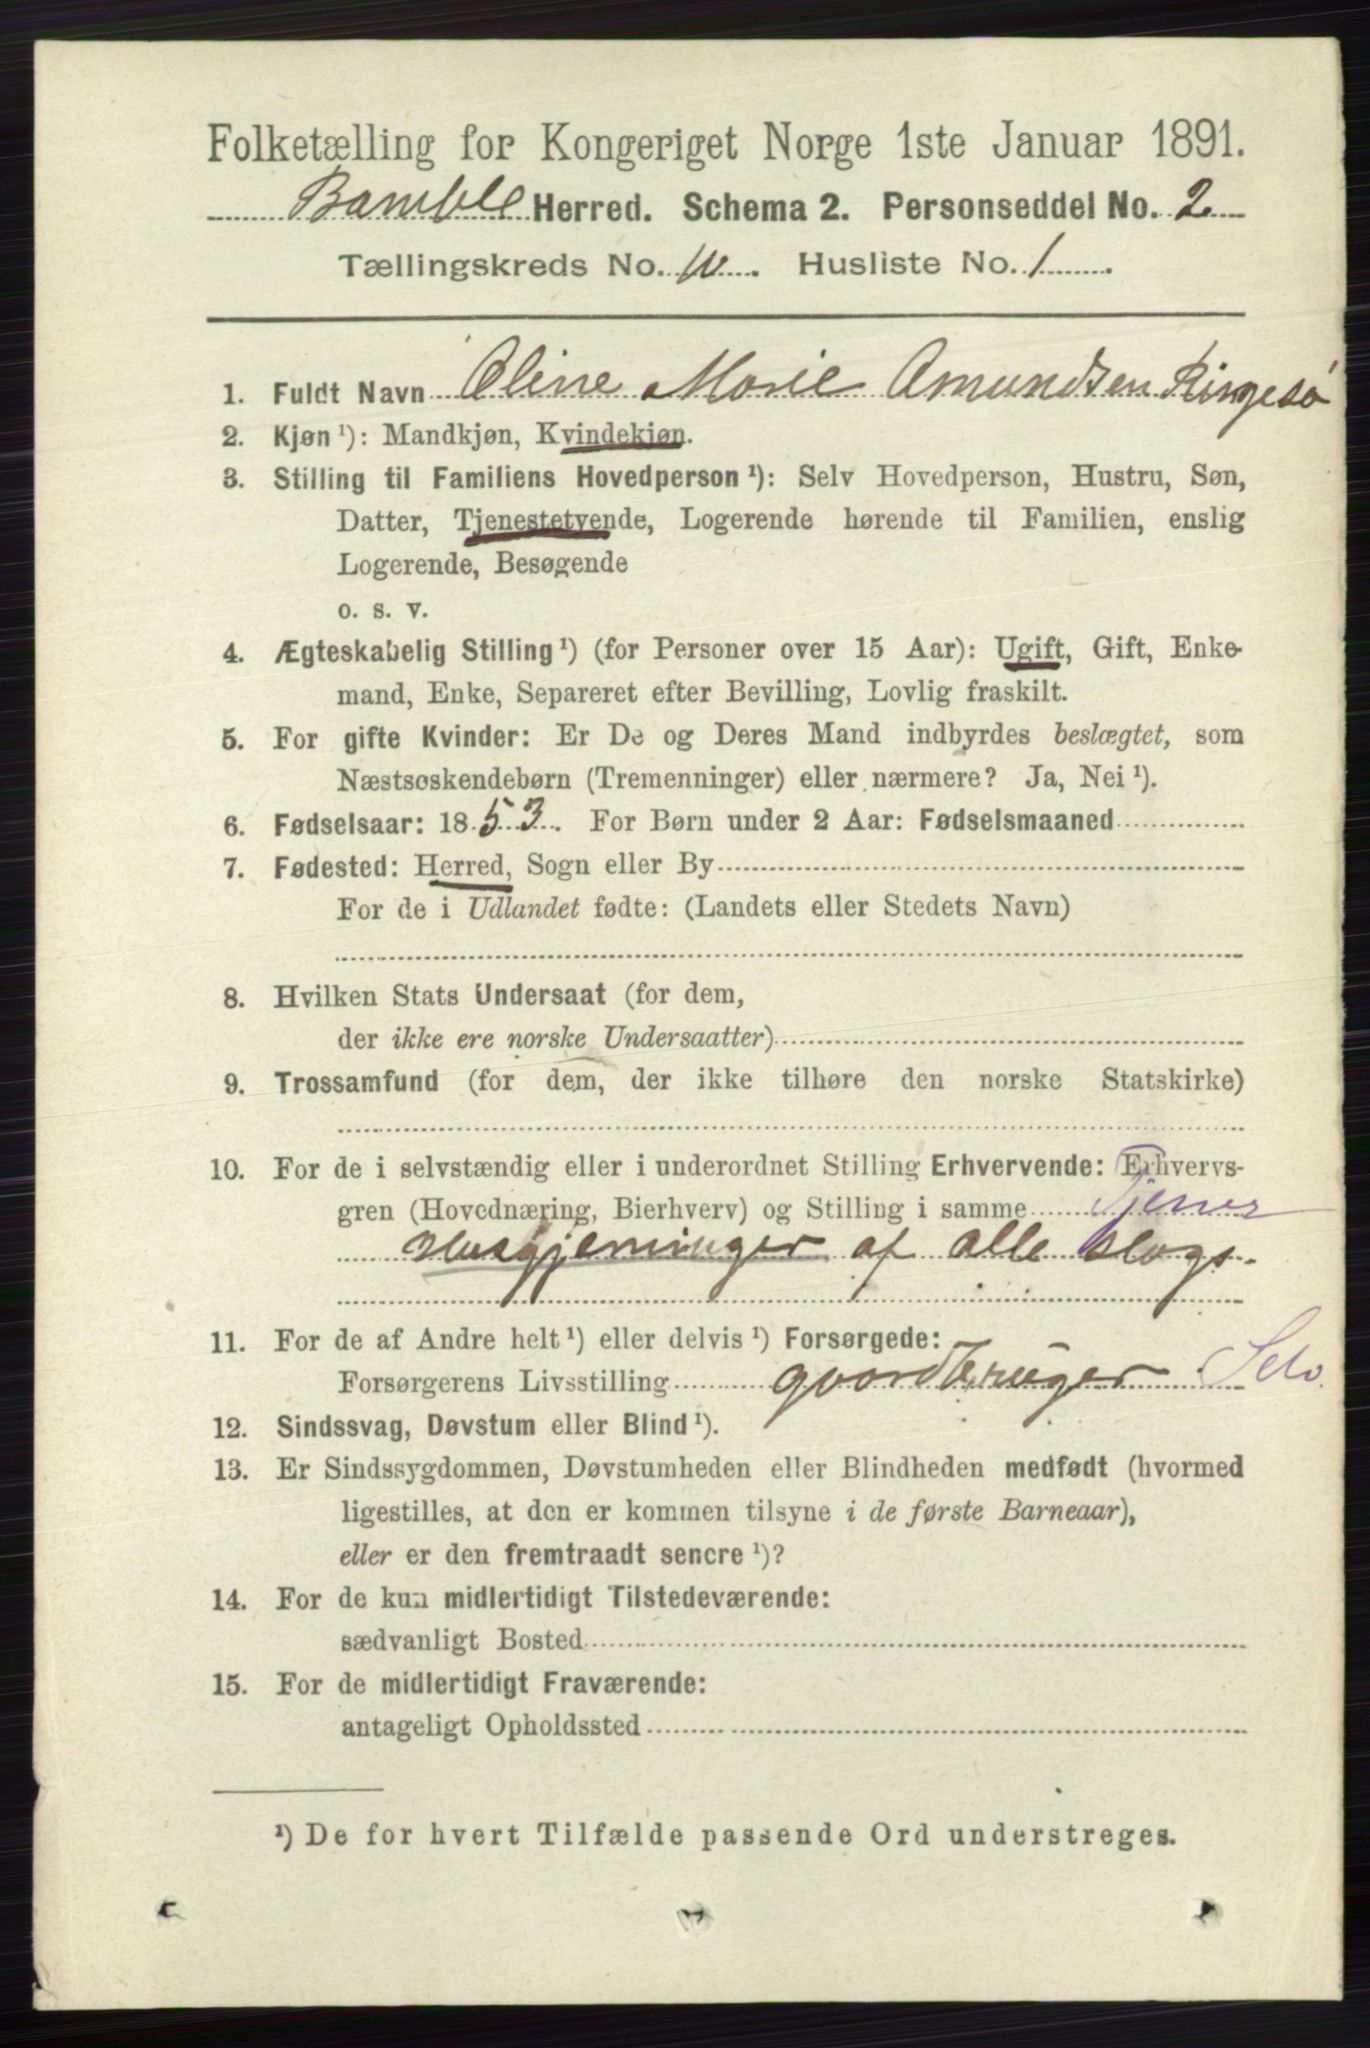 Folketælling for Kongeriget Norge 1ste Januar 1891.
Bamble Herred. Schema 2. Personseddel No. 2
Tællingskreds No. 10. Husliste No. 1.
1. Fuldt Navn Oline Marie Amundsen Ringesø
2. Kjøn ¹): Mandkjøn, Kvindekjøn.
3. Stilling til Familiens Hovedperson ¹): Selv Hovedperson, Hustru, Søn,
Datter, Tjenestetyende, Logerende hørende til Familien, enslig
Logerende, Besøgende
o. s. v.
4. Ægteskabelig Stilling ¹) (for Personer over 15 Aar): Ugift, Gift, Enke-
mand, Enke, Separeret efter Bevilling, Lovlig fraskilt.
5. For gifte Kvinder: Er De og Deres Mand indbyrdes beslægtet, som
Næstsøskendebørn (Tremenninger) eller nærmere? Ja, Nei ¹).
6. Fødselsaar: 1853. For Børn under 2 Aar: Fødselsmaaned
7. Fødested: Herred, Sogn eller By
For de i Udlandet fødte: (Landets eller Stedets Navn)
8. Hvilken Stats Undersaat (for dem,
der ikke ere norske Undersaatter)
9. Trossamfund (for dem, der ikke tilhøre den norske Statskirke)
10. For de i selvstændig eller i underordnet Stilling Erhvervende: Erhvervs-
gren (Hovednæring, Bierhverv) og Stilling i samme Tjener
Husgjerninger af alle slags.
11. For de af Andre helt ¹) eller delvis ¹) Forsørgede:
Forsørgerens Livsstilling gaardbruger Selv.
12. Sindssvag, Døvstum eller Blind ¹).
13. Er Sindssygdommen, Døvstumheden eller Blindheden medfødt (hvormed
ligestilles, at den er kommen tilsyne i de første Barneaar),
eller er den fremtraadt senere ¹)?
14. For de kun midlertidigt Tilstedeværende:
sædvanligt Bosted
15. For de midlertidigt Fraværende:
antageligt Opholdssted
¹) De for hvert Tilfælde passende Ord understreges.